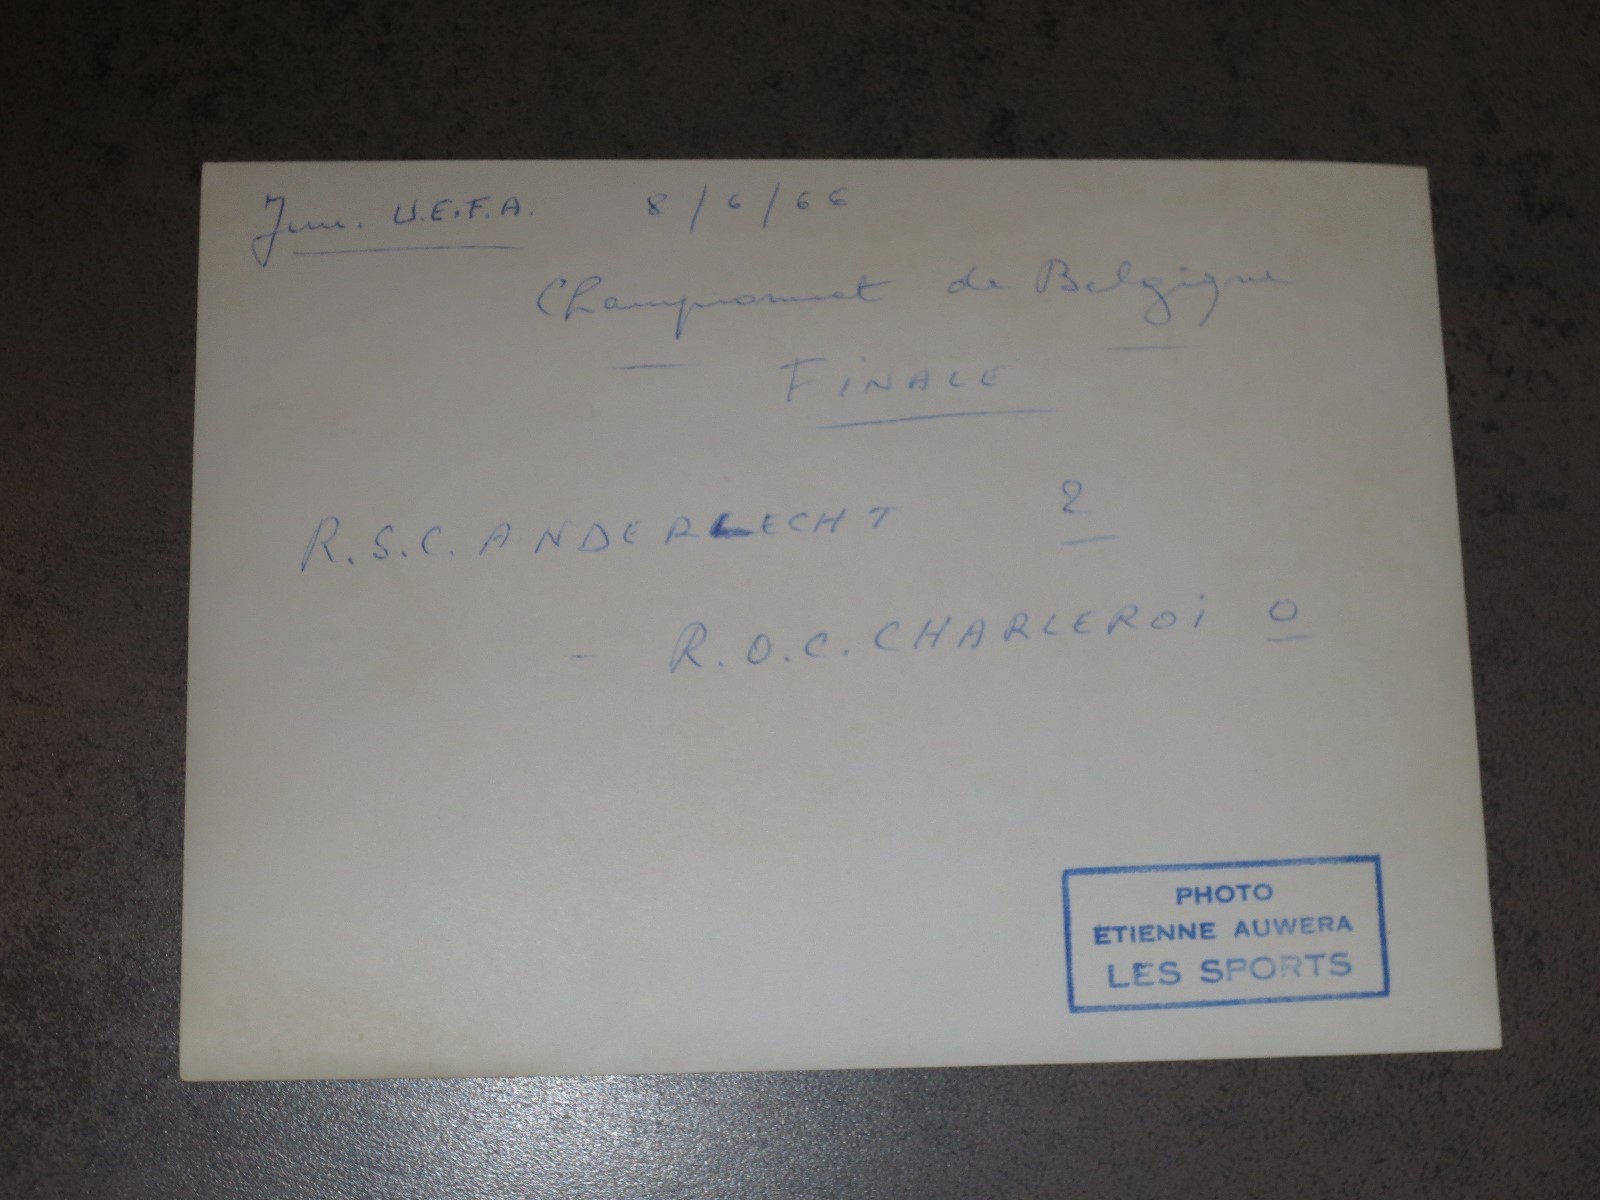 Jun. U.E.F.A. 8/6/66
Championnat de Belgique
FINALE
R.S.C. ANDERLECHT 2
- R.O.C. CHARLEROi 0
PHOTO
ETIENNE AUWERA
LES SPORTS